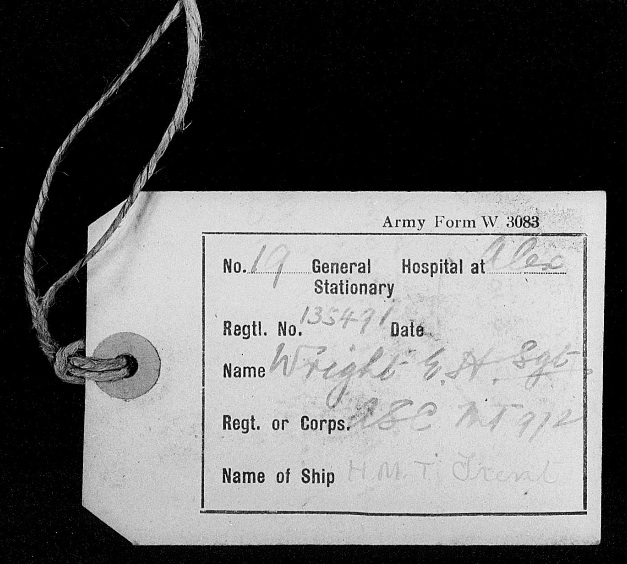 Army Form W 3083
No. 19 General Hospital at Alex
Stationary
Regtl. No. 135491 Date
Name Wright E. H. Sgt.
Regt. or Corps. ASC MT 912
Name of Ship H.M.T. Trent